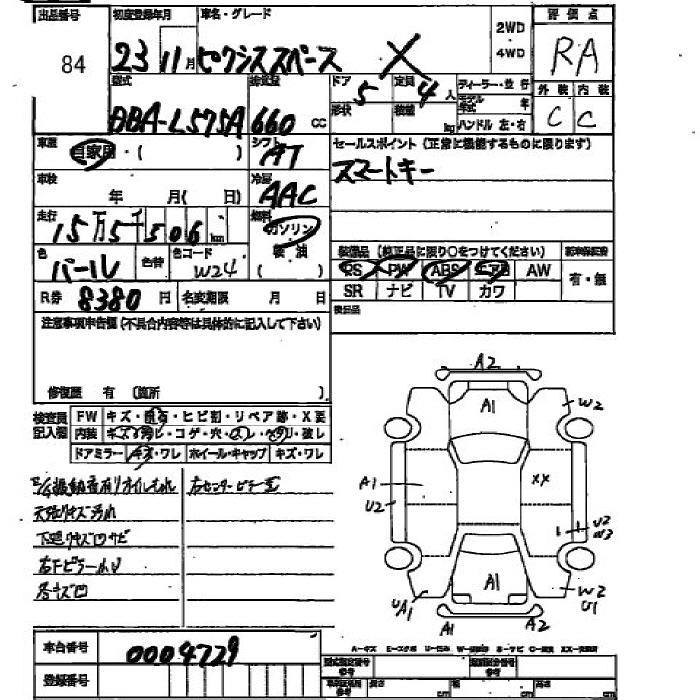 出品番号 初度登録年月 車名・グレード 評価点
84 23 11月 ピクシススペース X 2WD 4WD RA
型式 総排気量 ドア 5 定員 4人 ディーラー・並行 外装 内装
DBA-L575A 660 cc 形状 積載 kg モデル年式 年 ハンドル 左・右 C C
車歴 自家用・( ) シフト AT セールスポイント(正常に機能するものに限ります)
車検 年 月( 日) 冷房 AAC スマートキー
走行 15万5千506km 燃料 ガソリン 軽油
色 パール 色替 色コード W24 装備品(純正品に限り○をつけてください) 新車保証書
PS PW ABS エアB AW 有・無
SR ナビ TV カワ
R券 8380円 名変期限 月 日 後日品
注意事項申告欄(不具合内容等は具体的に記入して下さい)
修復歴 有 (箇所 )
検査員記入欄 FW キズ・飛石・ヒビ割・リペア跡・X要
内装 キズ・汚レ・コゲ・穴・コレ・ヘタリ・破レ
ドアミラー キズ・ワレ ホイール・キャップ キズ・ワレ
天張キズ汚れ
下廻りキズ凹サビ
各キズ凹
A2
A1
W2
A1
U2
XX
U2
W3
A1
UA1
W2
U1
A1
A2
車台番号 0004729
登録番号
長さ cm 幅 cm 高さ cm